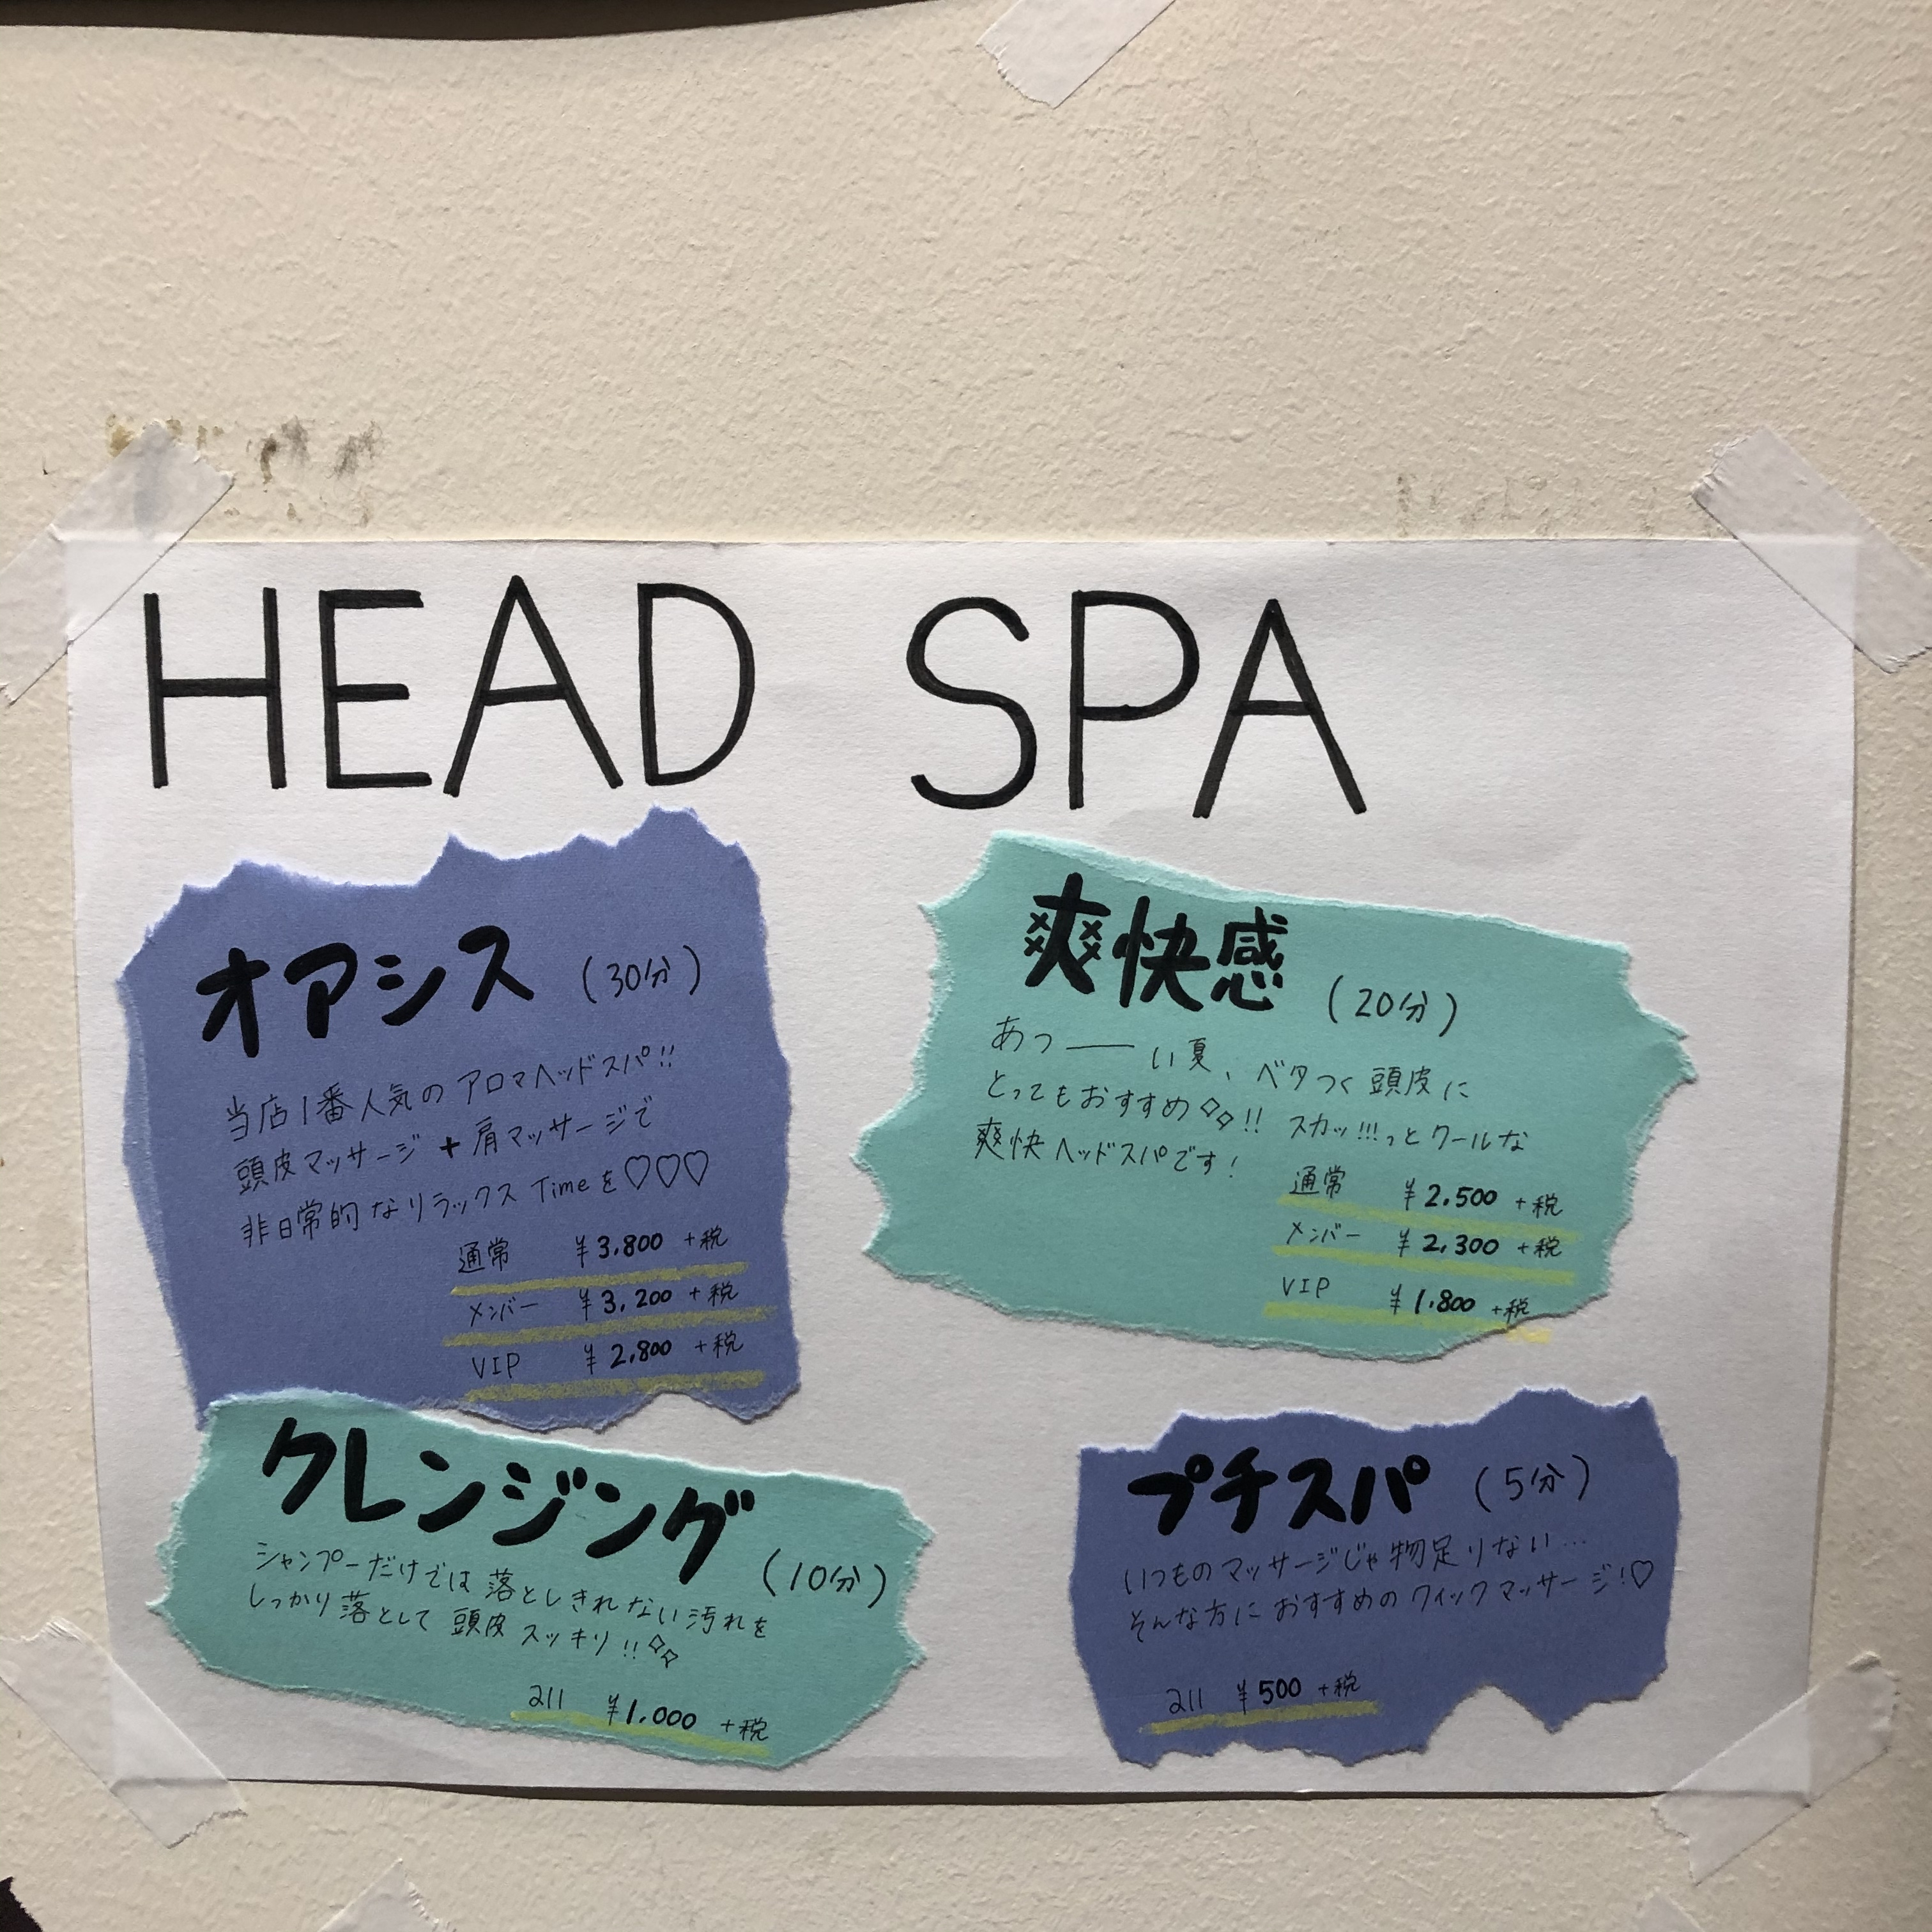 HEAD SPA
オアシス (30分)
当店1番人気のアロマヘッドスパ!!
頭皮マッサージ+肩マッサージで
非日常的なリラックスTimeを♡♡♡
通常 ¥3,800 +税
メンバー ¥3,200 +税
VIP ¥2,800 +税
爽快感 (20分)
あつ――い夏、ベタつく頭皮に
とってもおすすめ!! スカッ!!!っとクールな
爽快ヘッドスパです!
通常 ¥2,500 +税
メンバー ¥2,300 +税
VIP ¥1,800 +税
クレンジング (10分)
シャンプーだけでは落としきれない汚れを
しっかり落として頭皮スッキリ!!
all ¥1,000 +税
プチスパ (5分)
いつものマッサージじゃ物足りない…
そんな方におすすめのクイックマッサージ!♡
all ¥500 +税